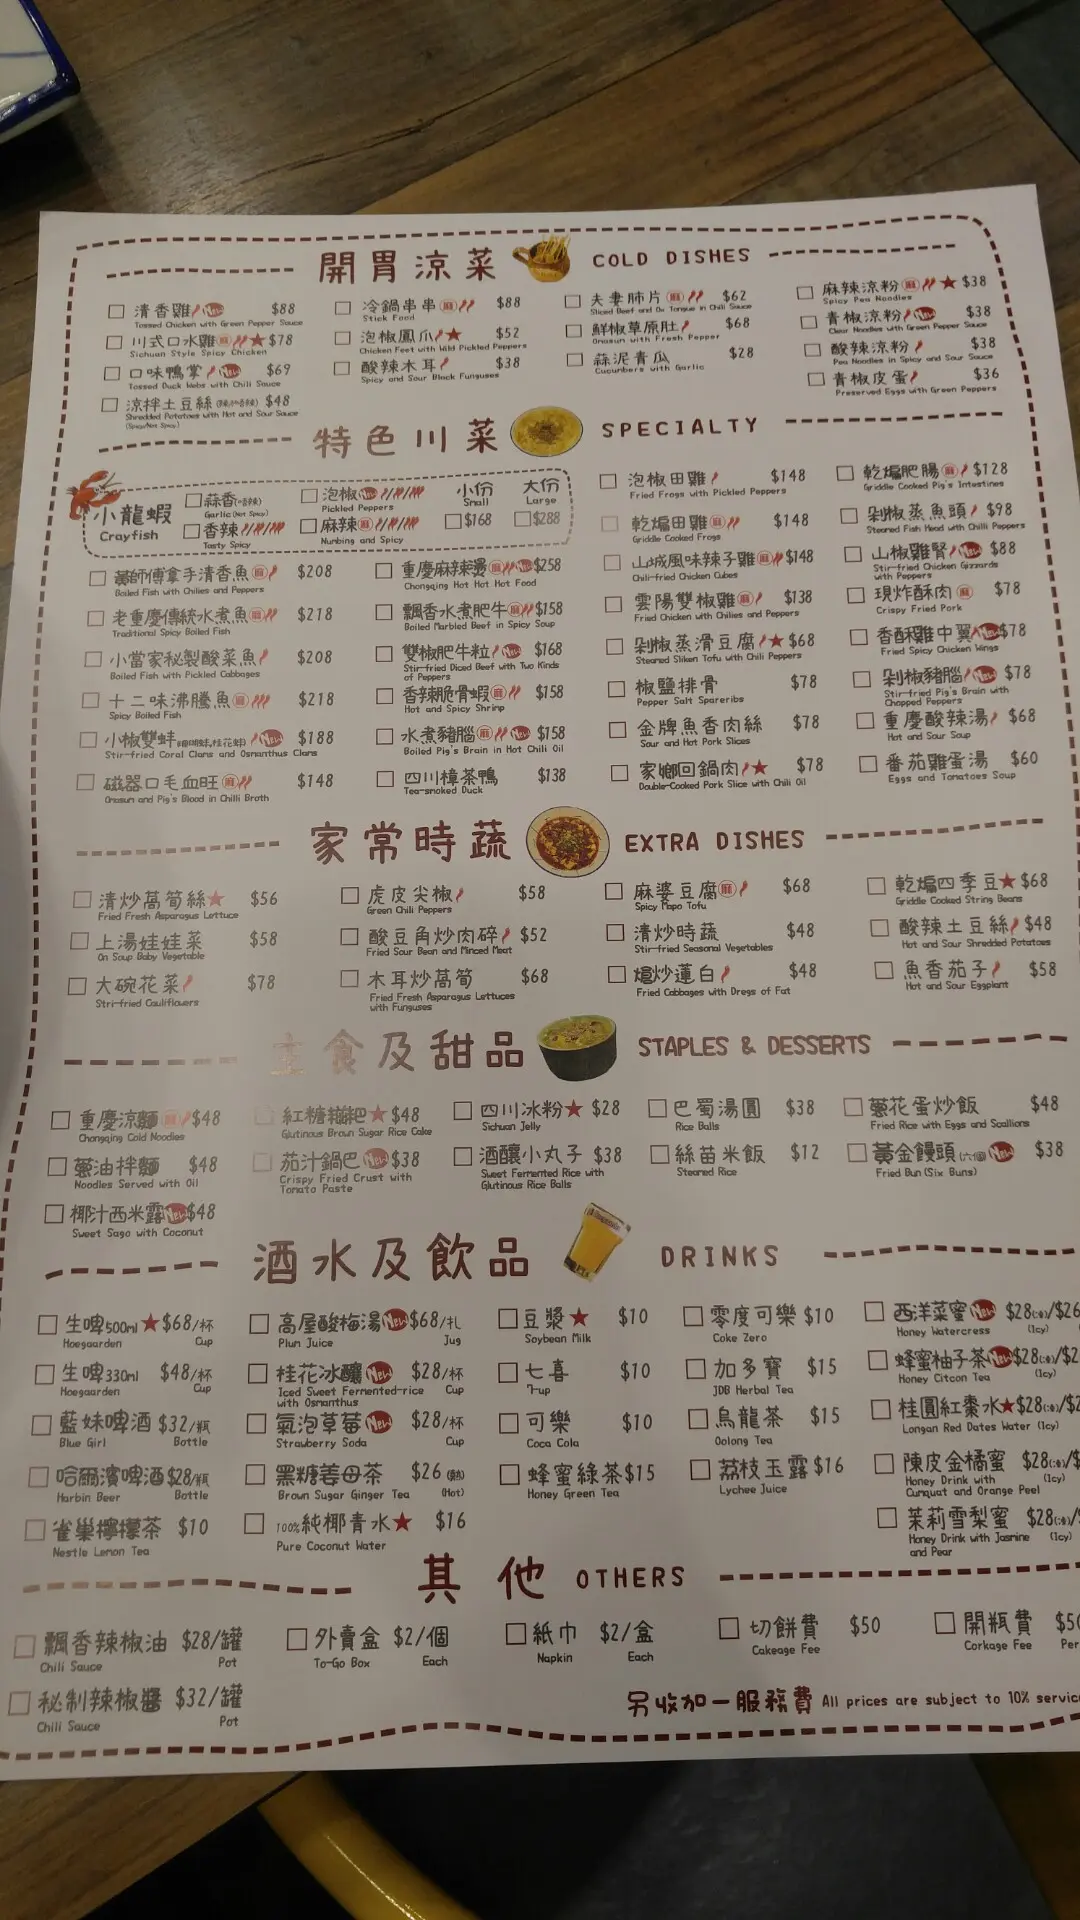 開胃涼菜 COLD DISHES
清香雞 New $88
Tossed Chicken with Green Pepper Sauce
川式口水雞 麻 ★ $78
Sichuan Style Spicy Chicken
口味鴨掌 New $69
Tossed Duck Webs with Chili Sauce
涼拌土豆絲 $48
Shredded Potatoes with Hot and Sour Sauce
(Spicy/Not Spicy)
冷鍋串串 麻 $88
Stick Food
泡椒鳳爪 ★ $52
Chicken Feet with Wild Pickled Peppers
酸辣木耳 $38
Spicy and Sour Black Funguses
夫妻肺片 麻 $62
Sliced Beef and Ox Tongue in Chili Sauce
鮮椒草原肚 $68
Omasum with Fresh Pepper
蒜泥青瓜 $28
Cucumbers with Garlic
麻辣涼粉 麻 ★ $38
Spicy Pea Noodles
青椒涼粉 New $38
Clear Noodles with Green Pepper Sauce
酸辣涼粉 $38
Pea Noodles in Spicy and Sour Sauce
青椒皮蛋 $36
Preserved Eggs with Green Peppers
特色川菜 SPECIALTY
小龍蝦
Crayfish
蒜香(唔辣)
Garlic (Not Spicy)
香辣
Tasty Spicy
泡椒 New
Pickled Peppers
麻辣 麻
Numbing and Spicy
小份
Small
$168
大份
Large
$288
黃師傅拿手清香魚 麻 $208
Boiled Fish with Chilies and Peppers
老重慶傳統水煮魚 麻 $218
Traditional Spicy Boiled Fish
小當家秘製酸菜魚 $208
Boiled Fish with Pickled Cabbages
十二味沸騰魚 麻 $218
Spicy Boiled Fish
小椒雙蚌 New $188
Stir-fried Coral Clams and Osmanthus Clams
磁器口毛血旺 麻 $148
Omasum and Pig's Blood in Chilli Broth
重慶麻辣燙 麻 New $258
Chongqing Hot Hot Hot Food
飄香水煮肥牛 麻 $158
Boiled Marbled Beef in Spicy Soup
雙椒肥牛粒 New $168
Stir-fried Diced Beef with Two Kinds
of Peppers
香辣脆骨蝦 麻 $158
Hot and Spicy Shrimp
水煮豬腦 麻 New $158
Boiled Pig's Brain in Hot Chili Oil
四川樟茶鴨 $138
Tea-smoked Duck
泡椒田雞 $148
Fried Frogs with Pickled Peppers
乾煸田雞 麻 $148
Griddle Cooked Frogs
山城風味辣子雞 麻 $148
Chili-fried Chicken Cubes
雲陽雙椒雞 麻 $138
Fried Chicken with Chilies and Peppers
剁椒蒸滑豆腐 ★ $68
Steamed Silken Tofu with Chili Peppers
椒鹽排骨 $78
Pepper Salt Spareribs
金牌魚香肉絲 $78
Sour and Hot Pork Slices
家鄉回鍋肉 ★ $78
Double-Cooked Pork Slice with Chili Oil
乾煸肥腸 麻 $128
Griddle Cooked Pig's Intestines
剁椒蒸魚頭 $98
Steamed Fish Head with Chilli Peppers
山椒雞腎 New $88
Stir-fried Chicken Gizzards
with Peppers
現炸酥肉 麻 $78
Crispy Fried Pork
香酥雞中翼 New $78
Fried Spicy Chicken Wings
剁椒豬腦 New $78
Stir-fried Pig's Brain with
Chopped Peppers
重慶酸辣湯 $68
Hot and Sour Soup
番茄雞蛋湯 $60
Eggs and Tomatoes Soup
家常時蔬 EXTRA DISHES
清炒萵筍絲 ★ $56
Fried Fresh Asparagus Lettuce
上湯娃娃菜 $58
On Soup Baby Vegetable
大碗花菜 $78
Stri-fried Cauliflowers
虎皮尖椒 $58
Green Chili Peppers
酸豆角炒肉碎 $52
Fried Sour Bean and Minced Meat
木耳炒萵筍 $68
Fried Fresh Asparagus Lettuces
with Funguses
麻婆豆腐 麻 $68
Spicy Mapo Tofu
清炒時蔬 $48
Stir-fried Seasonal Vegetables
熗炒蓮白 $48
Fried Cabbages with Dregs of Fat
乾煸四季豆 ★ $68
Griddle Cooked String Beans
酸辣土豆絲 $48
Hot and Sour Shredded Potatoes
魚香茄子 $58
Hot and Sour Eggplant
主食及甜品 STAPLES & DESSERTS
重慶涼麵 麻 $48
Chongqing Cold Noodles
蔥油拌麵 $48
Noodles Served with Oil
椰汁西米露 New $48
Sweet Sago with Coconut
紅糖糍粑 ★ $48
Glutinous Brown Sugar Rice Cake
茄汁鍋巴 New $38
Crispy Fried Crust with
Tomato Paste
四川冰粉 ★ $28
Sichuan Jelly
酒釀小丸子 $38
Sweet Fermented Rice with
Glutinous Rice Balls
巴蜀湯圓 $38
Rice Balls
絲苗米飯 $12
Steamed Rice
蔥花蛋炒飯 $48
Fried Rice with Eggs and Scallions
黃金饅頭(六個) New $38
Fried Bun (Six Buns)
酒水及飲品 DRINKS
生啤500ml ★ $68/杯
Hoegaarden Cup
生啤330ml $48/杯
Hoegaarden Cup
藍妹啤酒 $32/瓶
Blue Girl Bottle
哈爾濱啤酒 $28/瓶
Harbin Beer Bottle
雀巢檸檬茶 $10
Nestle Lemon Tea
高屋酸梅湯 New $68/扎
Plum Juice Jug
桂花冰釀 New $28/杯
Iced Sweet Fermented-rice Cup
with Osmanthus
氣泡草莓 New $28/杯
Strawberry Soda Cup
黑糖姜母茶 $26(熱)
Brown Sugar Ginger Tea (Hot)
100%純椰青水 ★ $16
Pure Coconut Water
豆漿 ★ $10
Soybean Milk
七喜 $10
7-up
可樂 $10
Coca Cola
蜂蜜綠茶 $15
Honey Green Tea
零度可樂 $10
Coke Zero
加多寶 $15
JDB Herbal Tea
烏龍茶 $15
Oolong Tea
荔枝玉露 $16
Lychee Juice
西洋菜蜜 New $28(凍)/$26
Honey Watercress (Icy)
蜂蜜柚子茶 New $28(凍)/$2
Honey Citcon Tea (Icy)
桂圓紅棗水 ★ $28(凍)/$2
Longan Red Dates Water (Icy)
陳皮金橘蜜 $28(凍)/$
Honey Drink with (Icy)
Cumquat and Orange Peel
茉莉雪梨蜜 $28(凍)/$
Honey Drink with Jasmine (Icy)
and Pear
其他 OTHERS
飄香辣椒油 $28/罐
Chili Sauce Pot
秘制辣椒醬 $32/罐
Chili Sauce Pot
外賣盒 $2/個
To-Go Box Each
紙巾 $2/盒
Napkin Each
切餅費 $50
Cakeage Fee
開瓶費 $50
Corkage Fee Per
另收加一服務費 All prices are subject to 10% servic